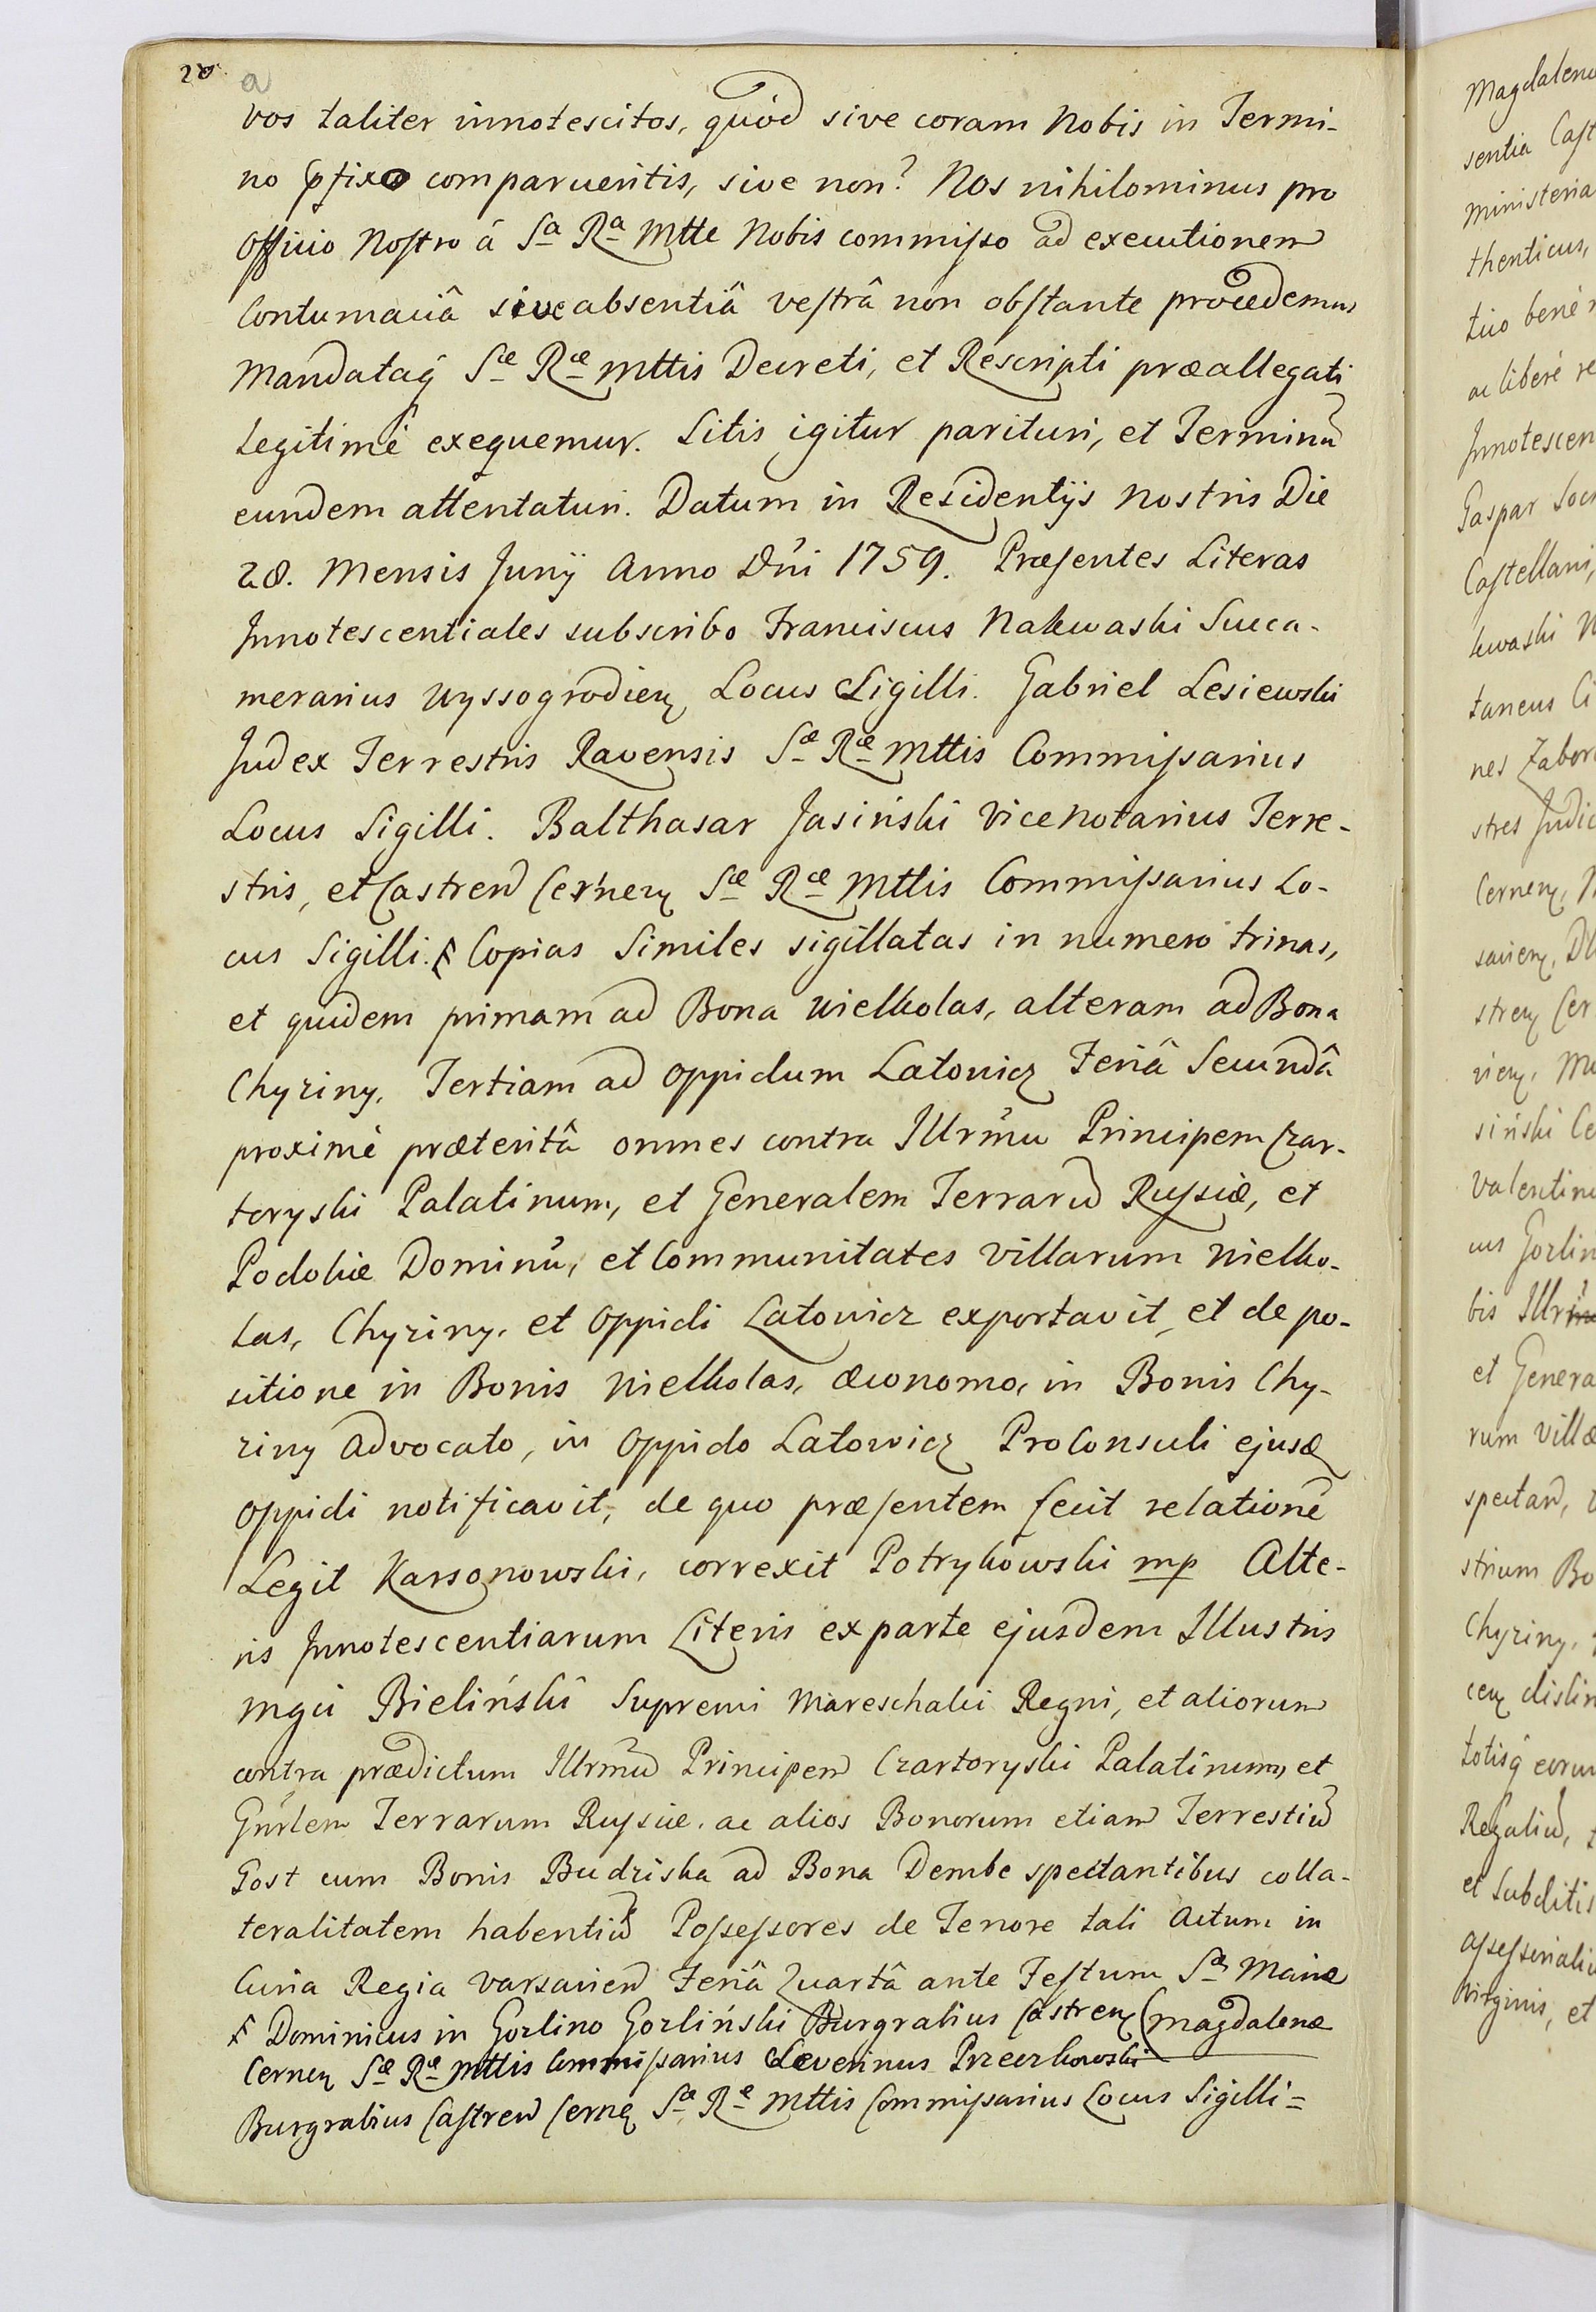 20.
a
vos taliter innotescitos, quòd sive coram Nobis in Termi-
no pfixo comparueritis, sive non? Nos nihilominus pro
Officio Nostro à Sa Ra Mtte Nobis commisso ad executionem
Contumaciâ sive absentiâ vestrâ non obstante procedemus
Mandataq̃ Sæ Ræ Mttis Decreti, et Rescripti præallegati
Legitimè exequemur. Sitis igitur parituri, et Terminũ
eundem attentaturi. Datum in Residentijs Nostris Die
28. Mensis Junij Anno Dñi 1759. Præsentes Literas
Innotescentiales subscribo Franciscus Nakwaski Succa-
merarius Wyssogrodien Locus Sigilli. Gabriel Lesiewski
Judex Terrestris Ravensis Sæ Ræ Mttis Commissarius
Locus Sigilli. Balthasar Jasiński ViceNotarius Terre-
stris, et Castren Cernen Sæ Ræ Mttis Commissarius Lo-
cus Sigilli. F Copias Similes sigillatas in numero trinas,
et quidem primam ad Bona Wielkolas, alteram ad Bona
Chyziny, Tertiam ad Oppidum Latowicz Feriâ Secundâ
proximè præteritâ omnes contra Illrm̃u Principem Czar-
toryski Palatinum, et Generalem Terrarũ Russiæ, et
Podoliæ Dominũ, et Communitates Villarum Wielko-
las, Chyziny, et Oppidi Latowicz exportavit, et de po-
sitione in Bonis Wielkolas, Œconomo, in Bonis Chy-
ziny Advocato, in Oppido Latowicz ProConsuli ejusd
Oppidi notificavit, de quo præsentem fecit relationẽ
Legit Karsznowski, correxit Potrykowski mp Alte-
ris Innotescentiarum Literis ex parte ejusdem Illustris
Mgci Bieliński Supremi Mareschalci Regni, et aliorum
contra prædictum Illrm̃u Principem Czartoryski Palatinum, et
Gñrlem Terrarum Russiæ, ac alios Bonorum etiam Terrestiũ
Gost cum Bonis Budziska ad Bona Dembe spectantibus colla-
teralitatem habentiũ Possessores de Tenore tali Actum in
Curia Regia Varsavien Feriâ Quartâ ante Festum Sæ Mariæ
Magdalenæ
F Dominicus in Gozlino Gozliński Burgrabius Castren
Cernen Sæ Ræ Mttis Commissarius Severinus Przeczkowski
Burgrabius Castren Cernen Sæ Ræ Mttis Commissarius Locus Sigilli=
Magdalenæ
sentia Cast
Ministeria
thenticus,
tuo benè
ac liberè re
Innotescen
Gaspar
Castellani,
kwaski
taneus
nes Zabor
stres Judic
Cernen,
savien,
stren Cer
vien,
siński Ce
Valentinu
cus Gozlin
bis Illrm
et Genera
rum Villæ
spectan,
strium Bo
Chyziny,
cen distin
totisq̃ eorum
Regaliũ,
et Subditis
Assessorialiũ
Virginis, et